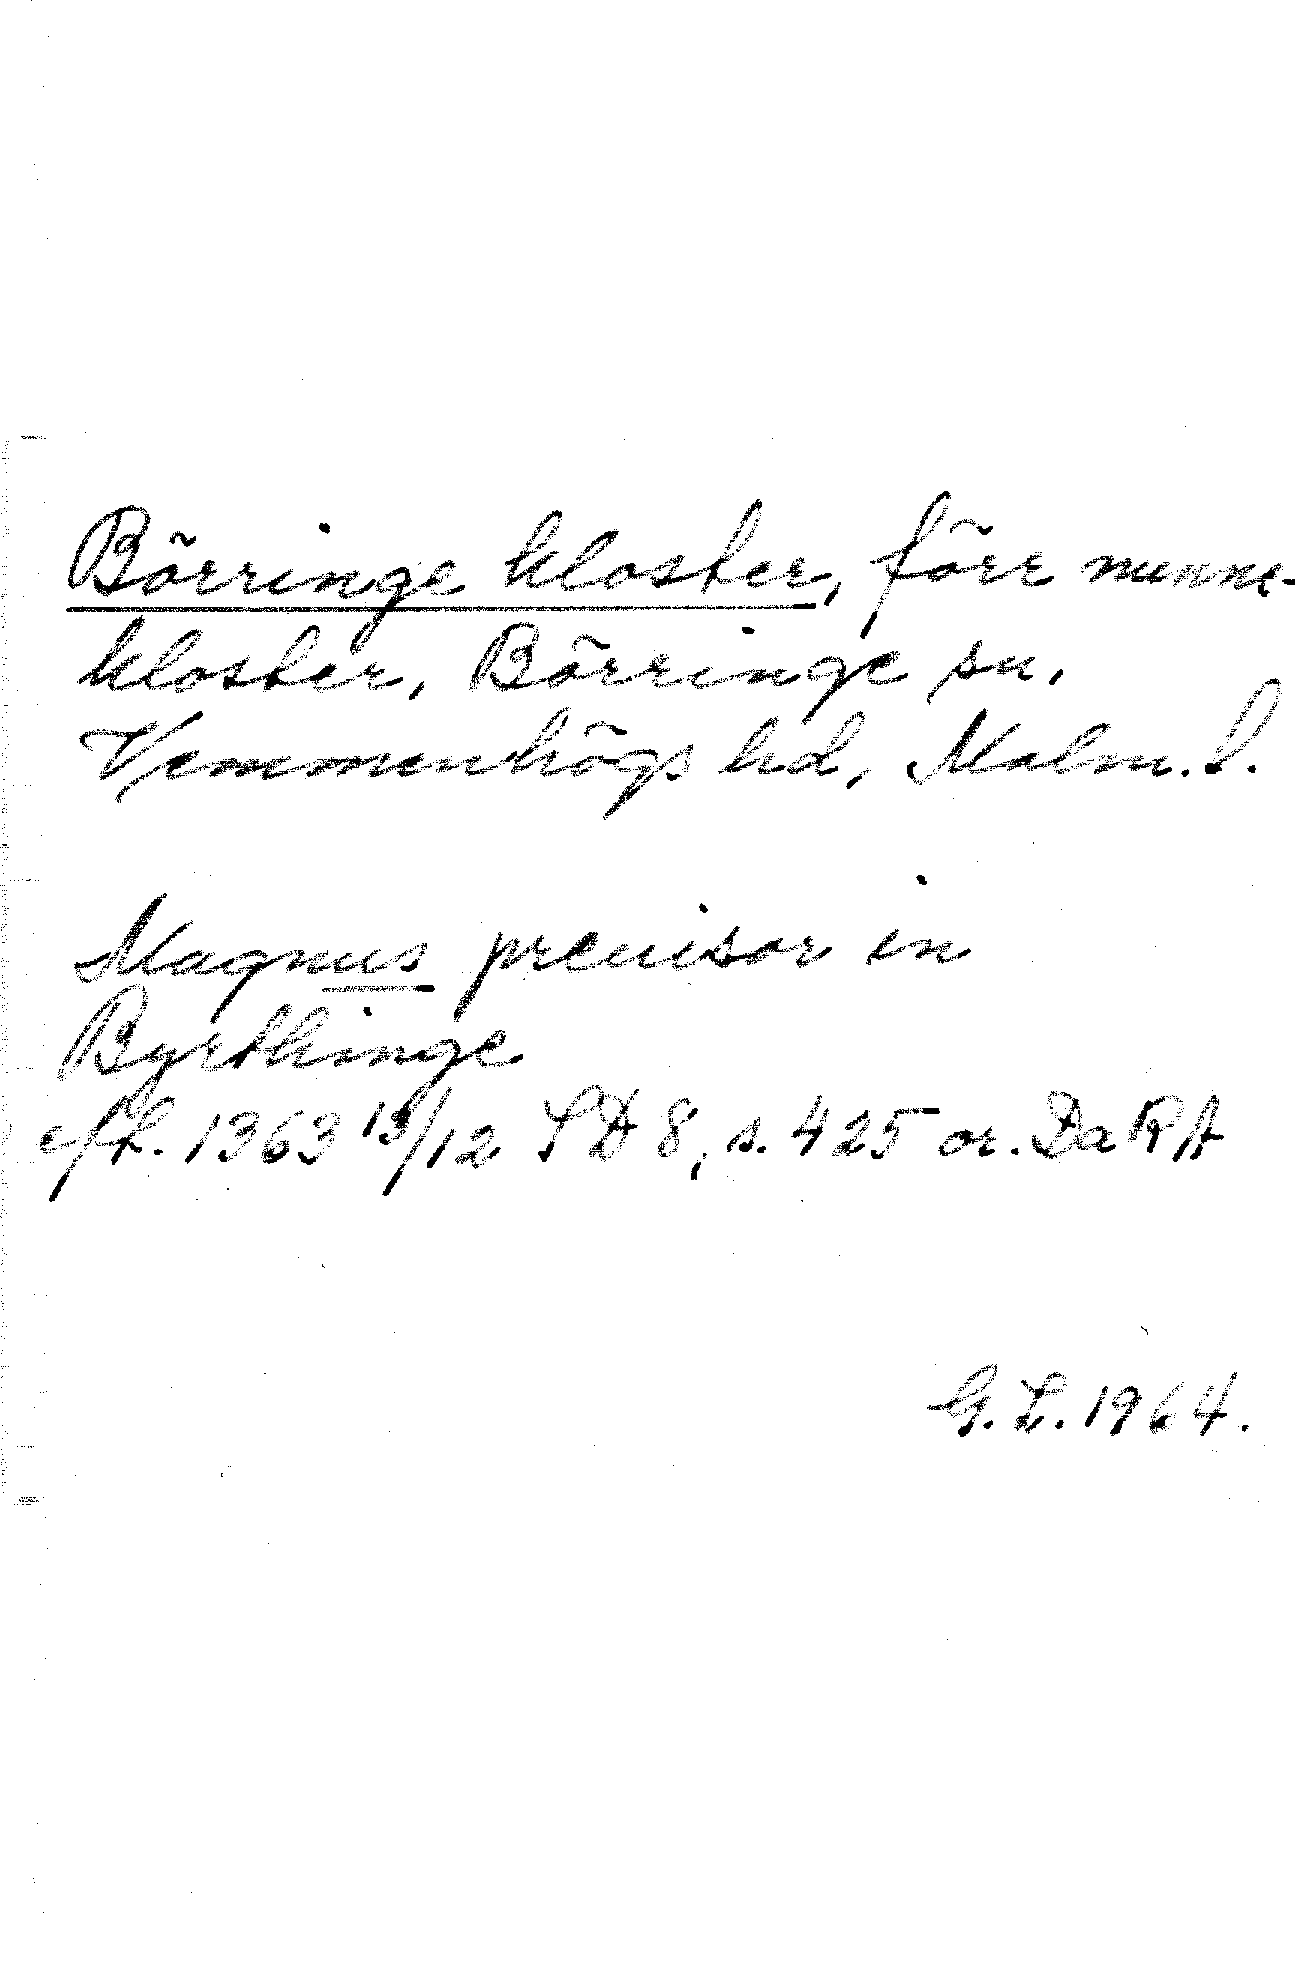 Börringe kloster, förr nunne-
kloster, Börringe sn,
Vemmenhögs hd, Malm. l.
Magnus prouisor in
Byrthinge
eft. 1363 13/12 SD 8, s. 425 or. DaRA
G. L. 1964.